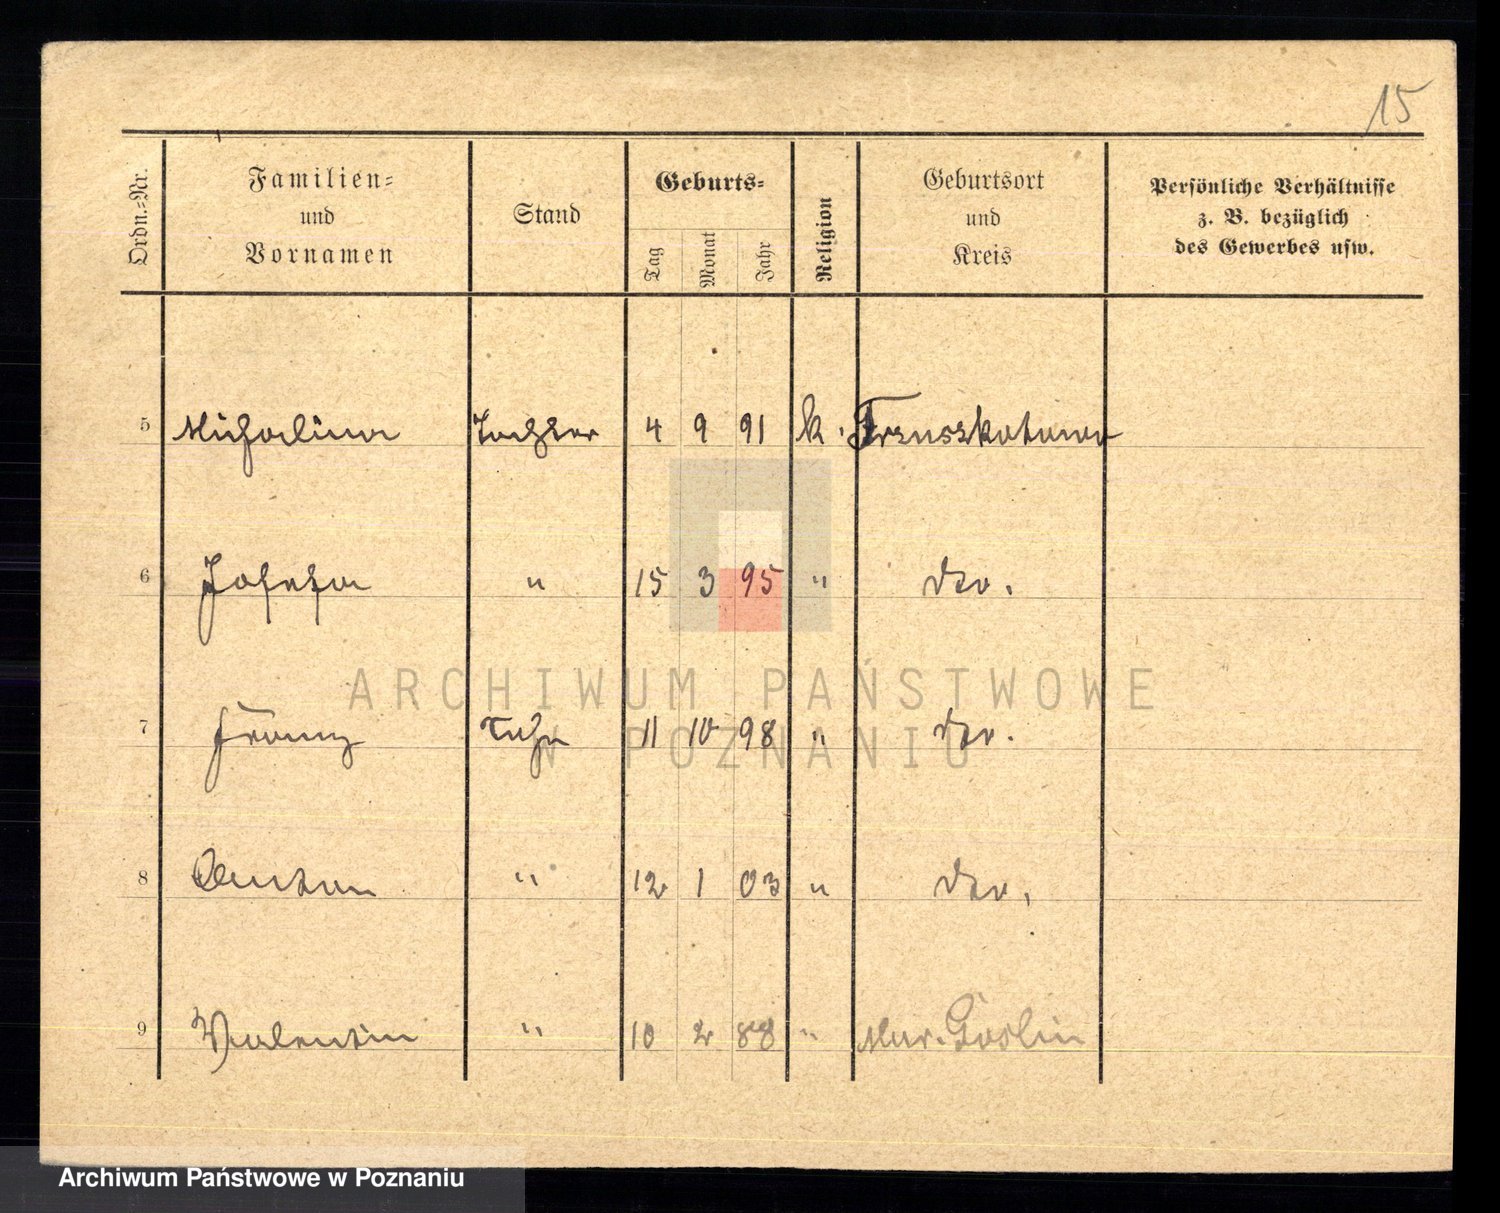 15
Ordn.-Nr.
Familien-
und
Vornamen
Stand
Geburts-
Tag
Monat
Jahr
Religion
Geburtsort
und
Kreis
Persönliche Verhältnisse
z. B. bezüglich
des Gewerbes usw.
5 Michalina Tochter 4 9 91 k.
6 Josefa " 15 3 95 " dto.
ARCHIWUM PAŃSTWOWE
7 Franz Sohn 11 10 98 " dto.
W POZNANIU
8 Anton " 12 1 03 " dto.
9 Valentin " 10 2 88 " Mur. Goslin
Archiwum Państwowe w Poznaniu